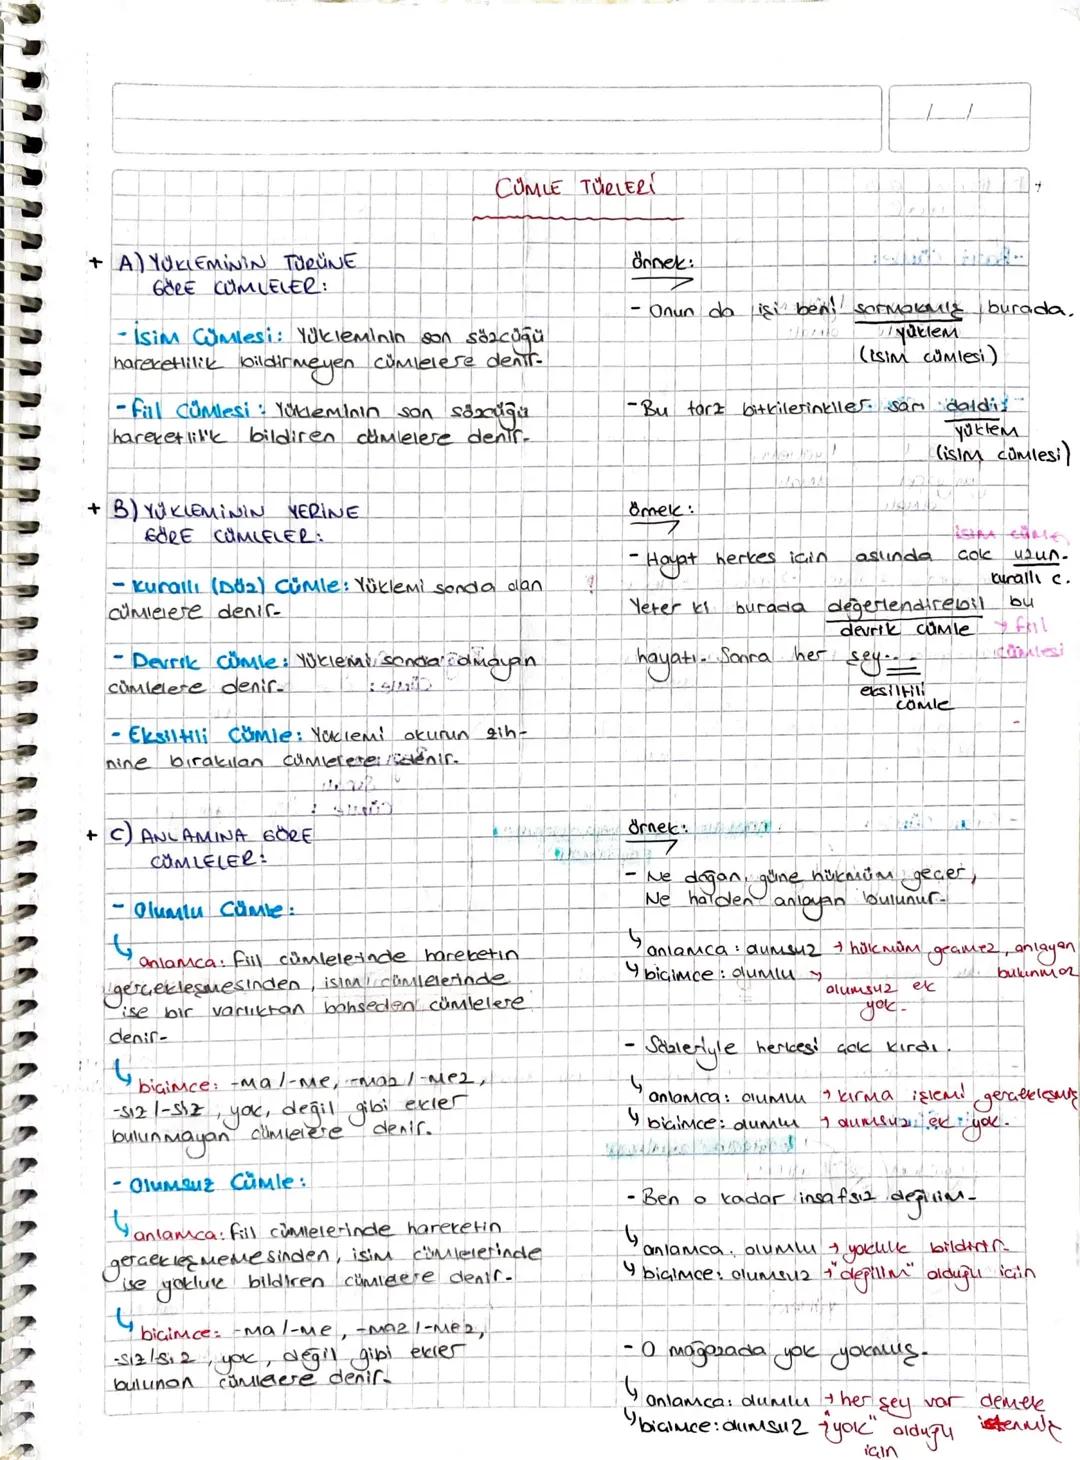 CÜMLE TÜRLERİ
+ A) YÜKLEMİNİN TÜRÜNE
GÖRE CÜMLELER:
- İsim Cümlesi: Yükleminin son sözcüğü
hareketlilik bildirmeyen cümlelere denir.
- Fiil Cümlesi: Yükleminin son sözcüğü
hareketlilik bildiren cümlelere denir.
Örnek:
- Onun da işi beni sormakmış burada.
yüklem
(isim cümlesi)
- Bu tarz bitkilerinkiler sarı daldı
yüklem
(isim cümlesi)
+ B) YÜKLEMİNİN YERİNE
GÖRE CÜMLELER:
- Kurallı (Düz) Cümle: Yüklemi sonda olan
cümlelere denir.
- Devrik Cümle: Yüklemi sonda olmayan
cümlelere denir.
- Eksiltili Cümle: Yüklemi okurun zih-
nine bırakılan cümlelere denir.
Örnek:
isim cümle
- Hayat herkes için aslında çok uzun.
kurallı c.
Yeter ki burada değerlendirebil bu
devrik cümle → fiil
cümlesi
hayatı. Sonra her şey...
eksiltili
cümle
+ C) ANLAMINA GÖRE
CÜMLELER:
- Olumlu Cümle:
↳ anlamca: fiil cümlelerinde hareketin
gerçekleşmesinden, isim cümlelerinde
ise bir varlıktan bahseden cümlelere
denir.
↳ biçimce: -ma/-me, -maz/-mez,
-sız/-siz, yok, değil gibi ekler
bulunmayan cümlelere denir.
- Olumsuz Cümle:
↳ anlamca: fiil cümlelerinde hareketin
gerçekleşmemesinden, isim cümlelerinde
ise yokluk bildiren cümlelere denir.
↳ biçimce: -ma/-me, -maz/-mez,
-sız/-siz, yok, değil gibi ekler
bulunan cümlelere denir.
Örnek:
- Ne doğan güne hükmüm geçer,
Ne halden anlayan bulunur.
↳ anlamca: olumsuz → hükmüm geçmez, anlayan
bulunmaz
↳ biçimce: olumlu → olumsuz ek
yok.
- Sözleriyle herkesi çok kırdı.
↳ anlamca: olumlu → kırma işlemi gerçekleşmiş
↳ biçimce: olumlu → olumsuz ek yok.
- Ben o kadar insafsız değilim.
↳ anlamca: olumlu → yokluk bildirir.
↳ biçimce: olumsuz → "değilim" olduğu için
- O mağazada yok yokmuş.
↳ anlamca: olumlu → her şey var demek
istenmiş
↳ biçimce: olumsuz → "yok" olduğu
için